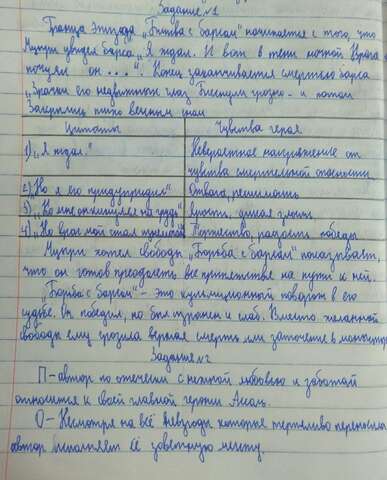 Задание №1
Граница эпизода "Битва с барсом" начинается с того, что
Мцыри увидел барса "Я ждал. И вот в тени ночной Врага
почуял он ...". Конец заканчивается смертью барса
"Зрачки его недвижных глаз Блеснули грозно - и потом
Закрылись тихо вечным сном
Цитаты Чувства героя
1) "Я ждал." Невероятное напряжение от
чувства смертельной опасности
2) "Но я его предупредил" Отвага, решимость
3) "Ко мне он кинулся на грудь" ярость,
4) "Но враг мой стал " Торжество, радость победы
Мцыри хотел свободы "Борьба с барсом" показывает,
что он готов преодолеть все препятствия на пути к ней.
"Борьба с барсом" - это кульмиционный поворот в его
судьбе. Он победил, но был изранен и слаб. Вместо желанной
свободы ему грозила верная смерть или заточение в монастыре
Задание №2
П - автор по отечески с нежной любовью и заботай
относится к своей главной героини Ассоль.
О - Несмотря на всё невзгоды которые терпеливо переносила
автор выполняет её заветную мечту.